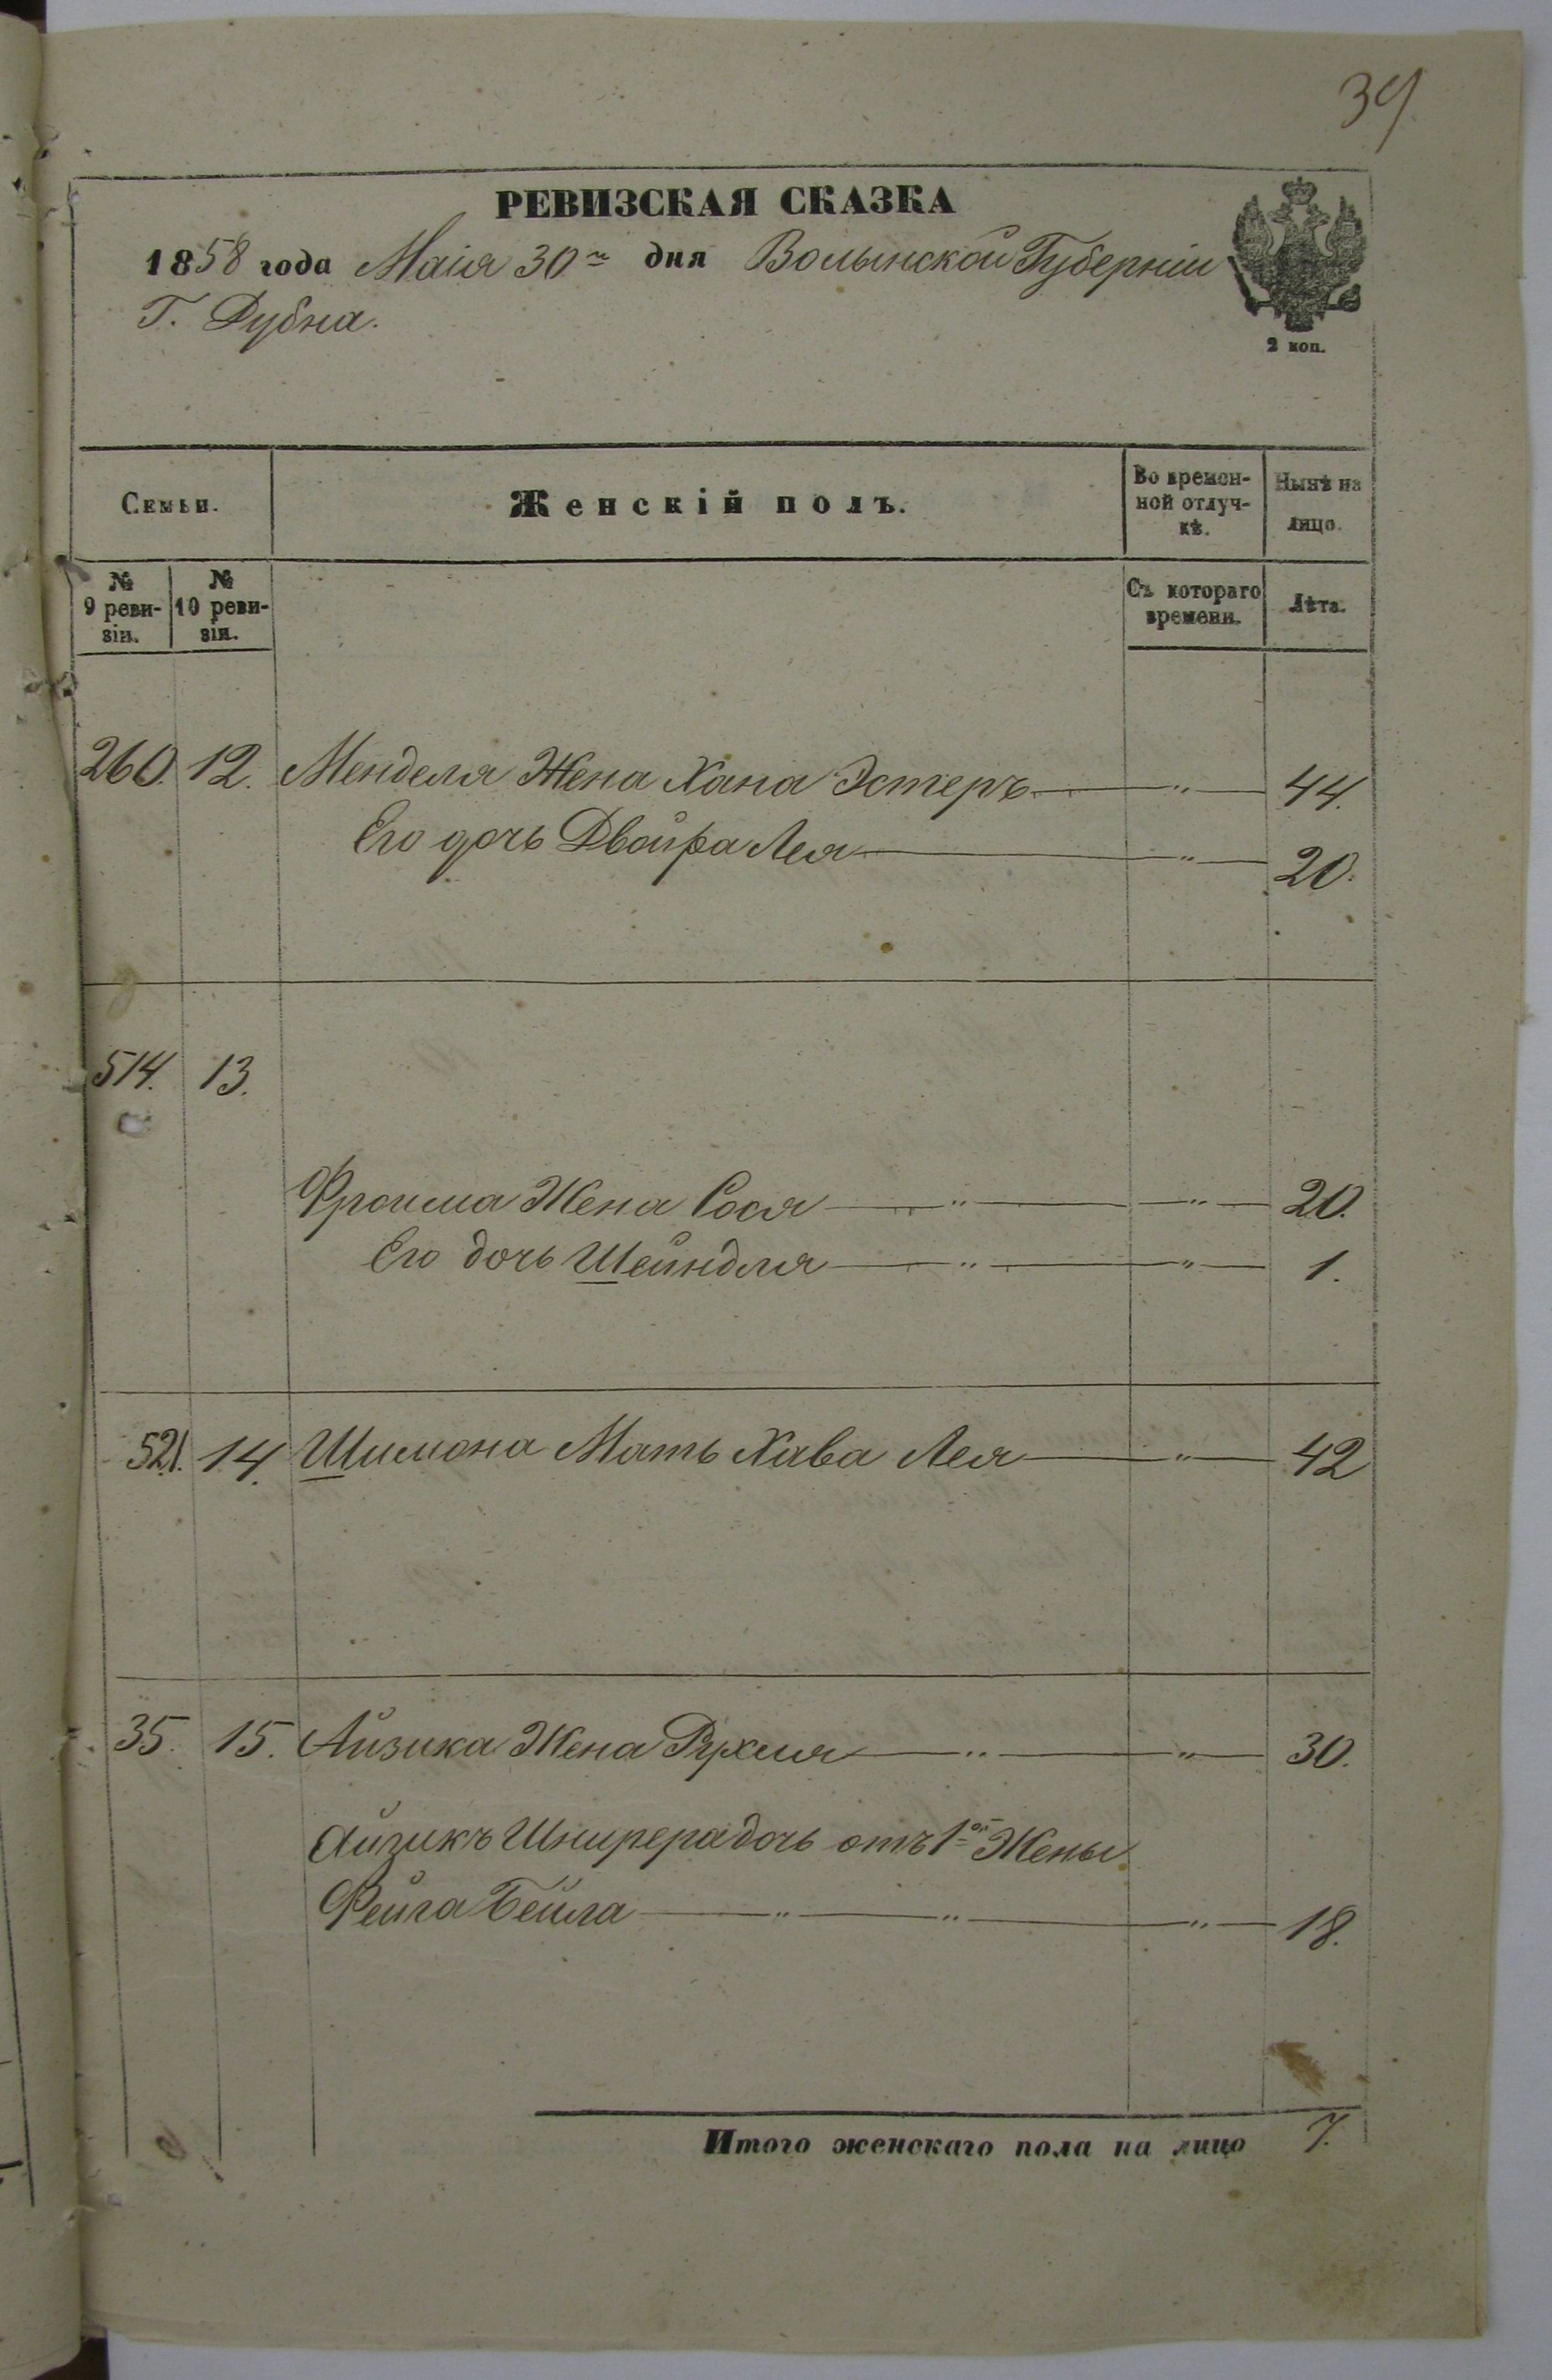 39
РЕВИЗСКАЯ СКАЗКА
1858 года Маія 30го дня Волынской Губерніи
Г. Дубна.
2 коп.
Семьи. Женскій полъ. Во времен-ной отлуч-кѣ. Нынѣ на лицо.
№ 9 реви-зіи. № 10 реви-зіи. Съ котораго времени. Лѣта.
260. 12. Менделя Жена Хана Эстеръ — " — 44.
Его дочь Двойра Лея — " — 20.
514. 13.
Фроима Жена Сося — " — " — 20.
Его дочь Шейндля — " — " — 1.
521. 14. Шимона Мать Хава Лея — " — 42
35. 15. Айзика Жена Рухля — " — " — 30.
Айзикъ Шнирера дочь отъ 1ой Жены
Фейга Бейла — " — " — " — 18.
Итого женскаго пола на лицо 7.